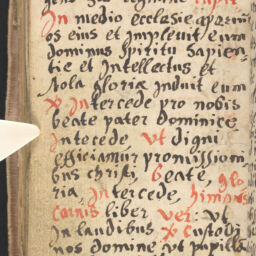 In medio ecclesie aperuit
os eius et implevit eum
dominus spiritu sapien
tie et intellectus et
stola gloriæ induit eum
Intercede pro nobis
beate pater Dominice
Intecede, Vt digni
efficiamur promission
bus christi, beate, glo
ria, Intercede, himnus
liber ver: vt
in laudibus custodi
nos domine, vt pupilla